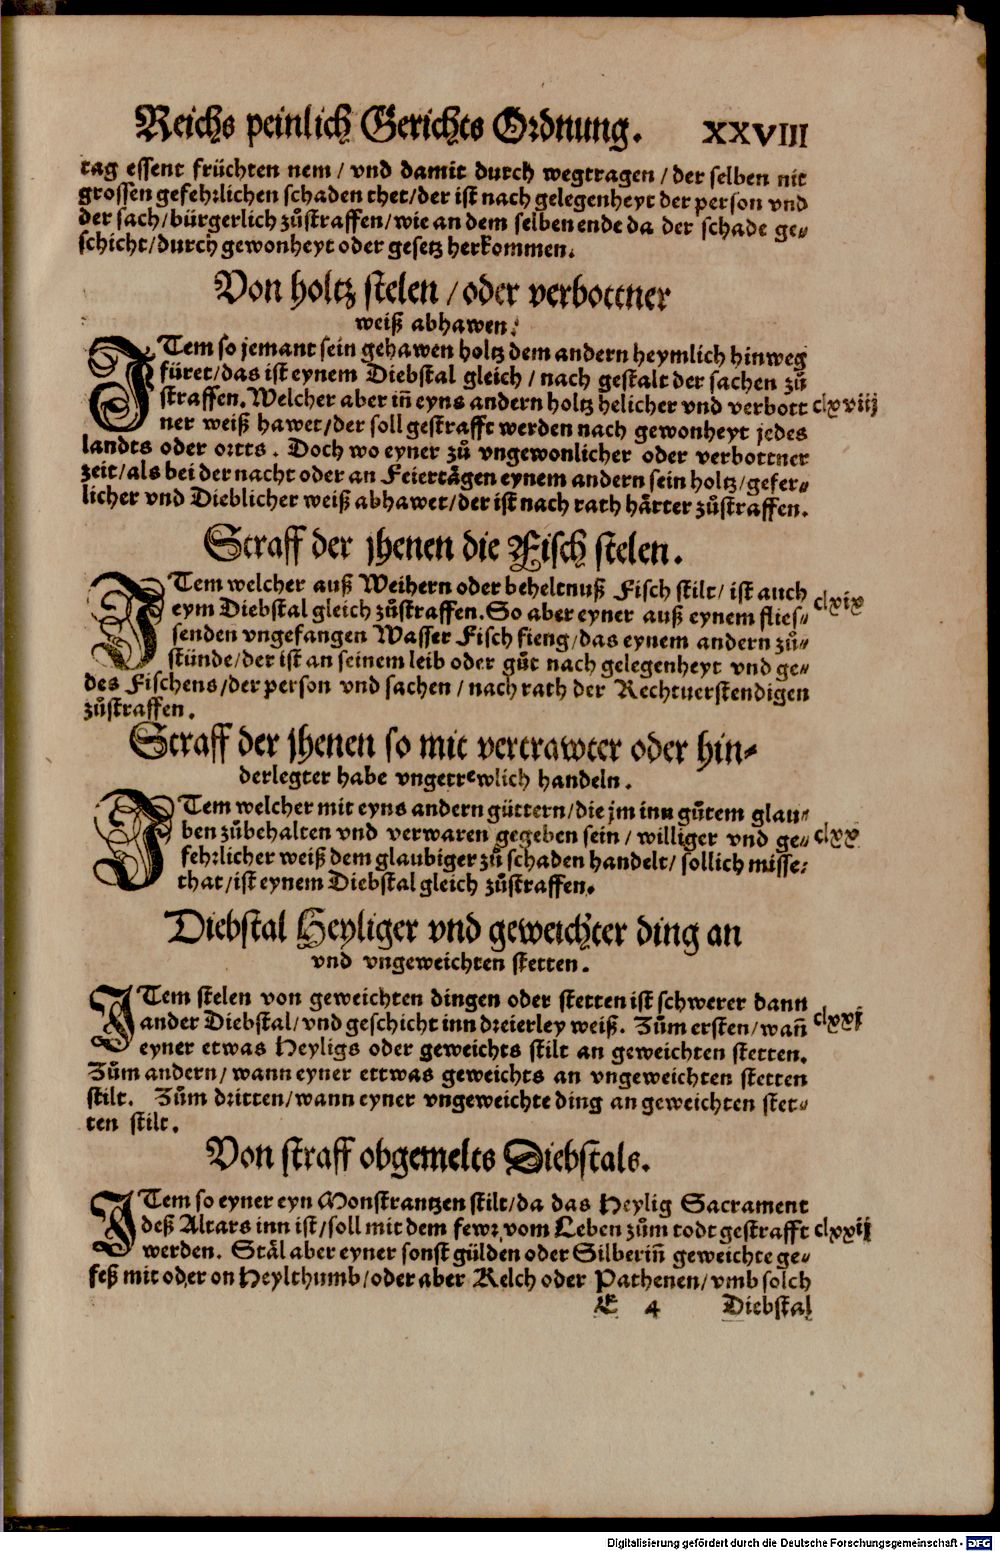 Reichs peinlich Gerichts Ordnung. XXVIII
tag essent früchten nem / vnd damit durch wegtragen / der selben nit
grossen gefehrlichen schaden thet/der ist nach gelegenheyt der person vnd
der sach/bürgerlich zůstraffen/wie an dem selben ende da der schade ge⸗
schicht/durch gewonheyt oder gesetz herkommen.
Von holtz stelen / oder verbottner
weiß abhawen.
ITem so jemant sein gehawen holtz dem andern heymlich hinweg
füret/das ist eynem Diebstal gleich / nach gestalt der sachen zů
straffen. Welcher aber iñ eyns andern holtz helicher vnd verbott clxviij
ner weiß hawet/der soll gestrafft werden nach gewonheyt jedes
landts oder ortts. Doch wo eyner zů vngewonlicher oder verbottner
zeit/als bei der nacht oder an Feiertägen eynem andern sein holtz/gefer⸗
licher vnd Dieblicher weiß abhawet/der ist nach rath härter zůstraffen.
Straff der jhenen die Fisch stelen.
ITem welcher auß Weihern oder beheltnuß Fisch stilt/ ist auch clxix
eym Diebstal gleich zůstraffen. So aber eyner auß eynem flies⸗
senden vngefangen Wasser Fisch fieng/das eynem andern zů⸗
stünde/der ist an seinem leib oder gůt nach gelegenheyt vnd ge⸗
des Fischens/der person vnd sachen / nach rath der Rechtuerstendigen
zůstraffen.
Straff der jhenen so mit vertrawter oder hin⸗
derlegter habe vngetrewlich handeln.
ITem welcher mit eyns andern güttern/die jm inn gůtem glau⸗
ben zůbehalten vnd verwaren gegeben sein / williger vnd ge⸗ clxx
fehrlicher weiß dem glaubiger zů schaden handelt/ sollich misse⸗
that/ist eynem Diebstal gleich zůstraffen.
Diebstal Heyliger vnd geweichter ding an
vnd vngeweichten stetten.
ITem stelen von geweichten dingen oder stetten ist schwerer dann
ander Diebstal/vnd geschicht inn dreierley weiß. Zům ersten/wañ clxxj
eyner etwas Heyligs oder geweichts stilt an geweichten stetten.
Zům andern/ wann eyner ettwas geweichts an vngeweichten stetten
stilt. Zům dritten/wann eyner vngeweichte ding an geweichten stet⸗
ten stilt.
Von straff obgemelts Diebstals.
ITem so eyner eyn Monstrantzen stilt/da das Heylig Sacrament
deß Altars inn ist/soll mit dem fewr vom Leben zům todt gestrafft clxxij
werden. Stäl aber eyner sonst gülden oder Silberiñ geweichte ge⸗
feß mit oder on Heylthumb/oder aber Kelch oder Pathenen/vmb solch
E 4 Diebstal
Digitalisierung gefördert durch die Deutsche Forschungsgemeinschaft - DFG